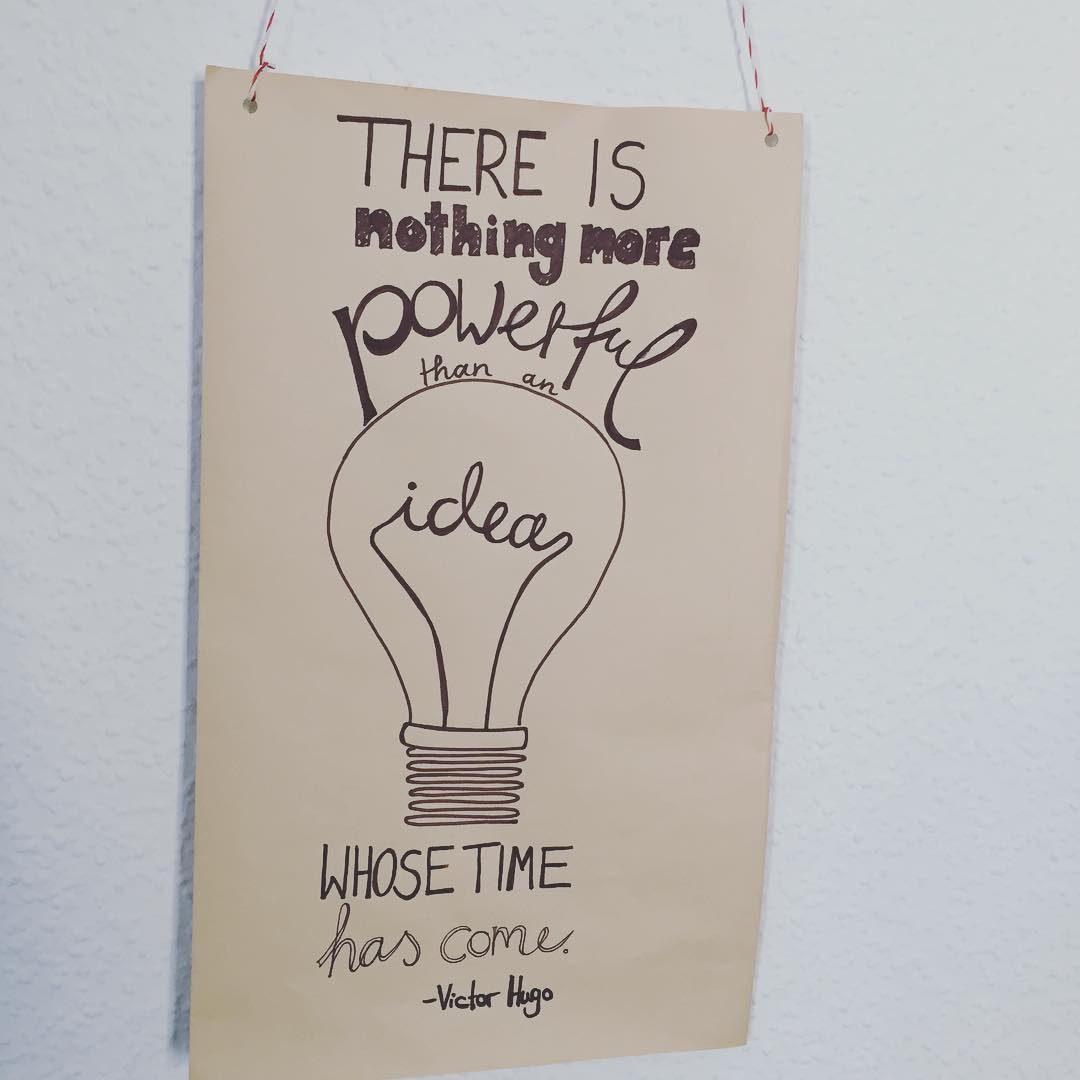 THERE IS
nothing more
powerful
than an
idea
WHOSE TIME
has come.
-Victor Hugo